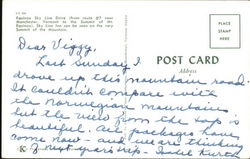 Equinox Sky Line Drive (from route #7 near
Manchester, Vermont to the Summit of Mt.
Equinox). Sky Line Inn can be seen on the very
Summit of the Mountain.
PLACE
STAMP
HERE
POST CARD
Address
Dear Viggy.
Last Sunday I
drove up this mountain road.
It couldn't compare with
the Norwegian mountains
but the view from the top is
beautiful. All packages have
come now - and we are thinking
of next years trip.